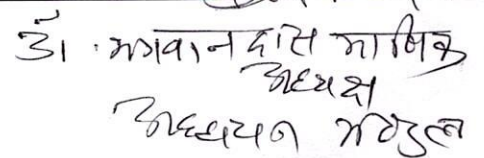 डॉ. भगवानदास माणिक
अध्यक्ष
अध्ययन मण्डल